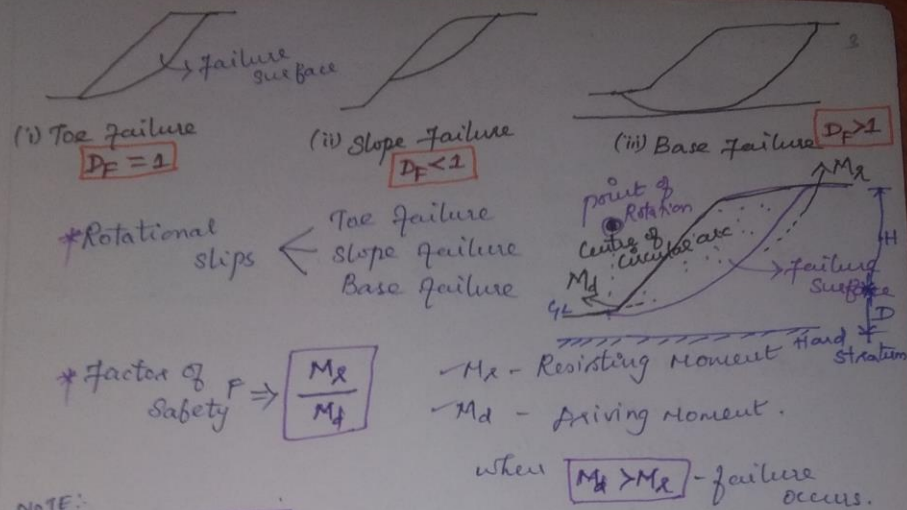 3
Failure
surface
(i) Toe Failure
D_F = 1
(ii) Slope Failure
D_F < 1
(iii) Base Failure
D_F > 1
*Rotational
slips
Toe Failure
Slope Failure
Base Failure
point of
Rotation
Centre of
circular arc
M_r
M_d
GL
H
D
Failure
Surface
Hard
Stratum
*Factor of
Safety F ⇒ M_r / M_d
M_r - Resisting Moment
M_d - Driving Moment.
when M_d > M_r - failure
occurs.
NOTE:-